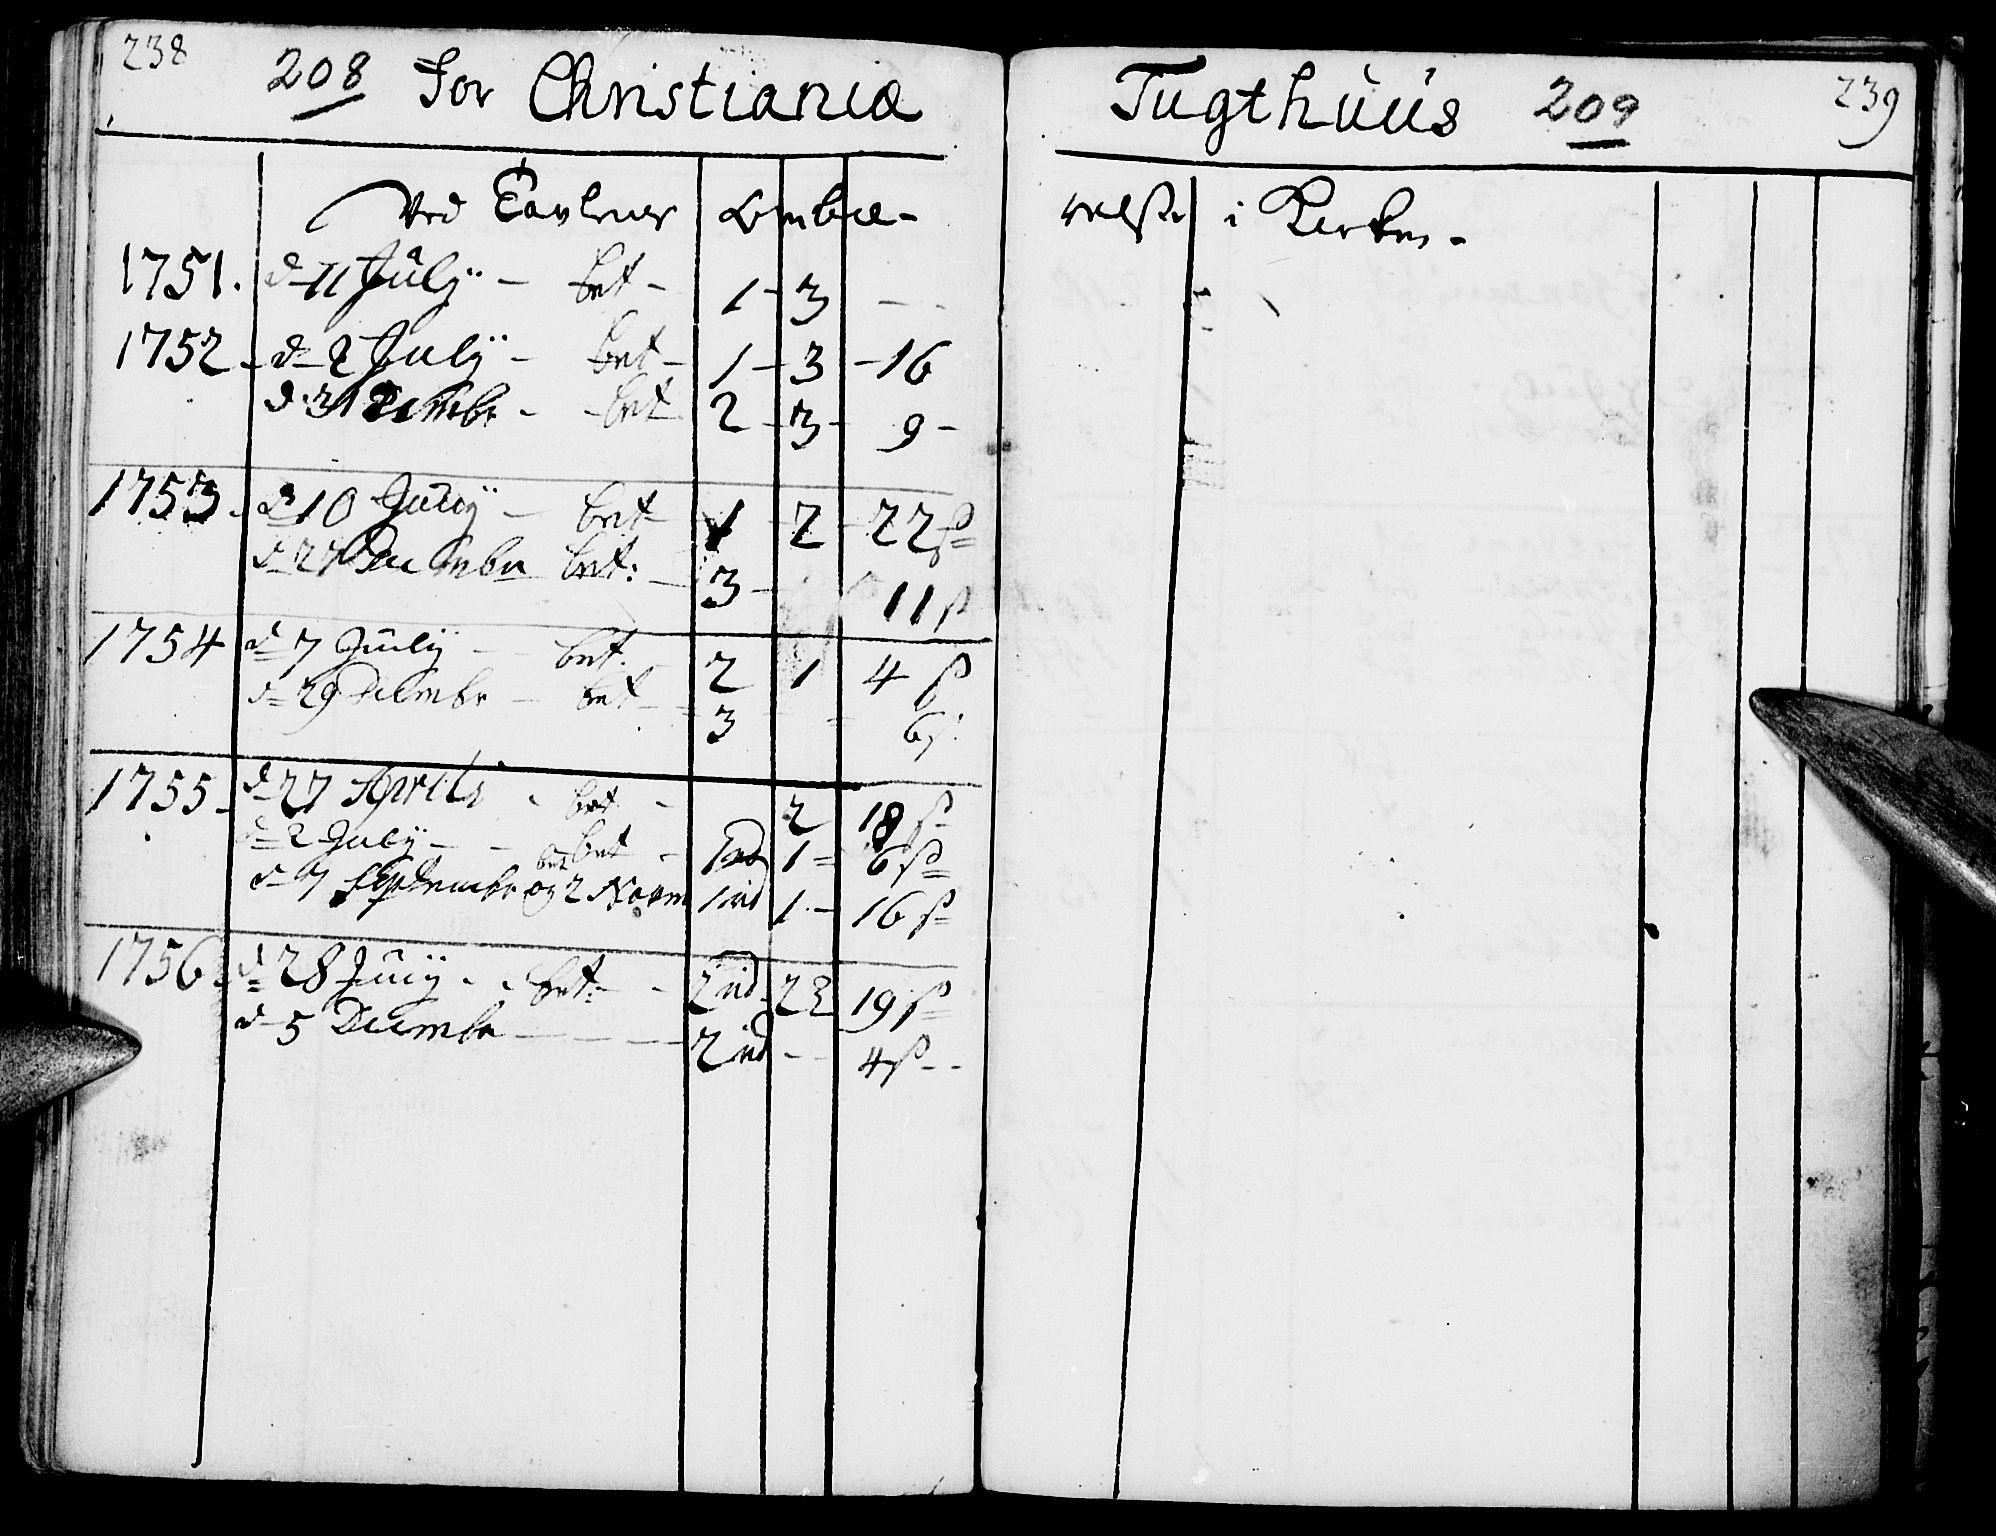 238
208 For Christianiæ Tugthuus 209
239
Ved Tavlens Ombæ- relse i Kirken.
1751. d 11 July - bet - 1 - 3 - -
1752. d 2 July - bet - 1 - 3 - 16
d. 31 Decembr - bet 2 - 3 - 9 -
1753. d 10 July - bet - 1 2 - 22 ß
d 27 Decembr bet: - 3 - 11 ß
1754 d 7 July - bet. 2 1 4 ß
d 29 Decembr - bet - 3 6 ß.
1755. d 27 Aprili - bet - 2 18 ß
d 2 July - - bet - 1 rd 1 = 6 ß
d 7 Septembr og 2 Novm bet 1 rd 1 - 16 ß
1756. d 28 July - bet - 2 rd 19 ß
d 5 Decembr - - - 2 rd - - 4 ß - -